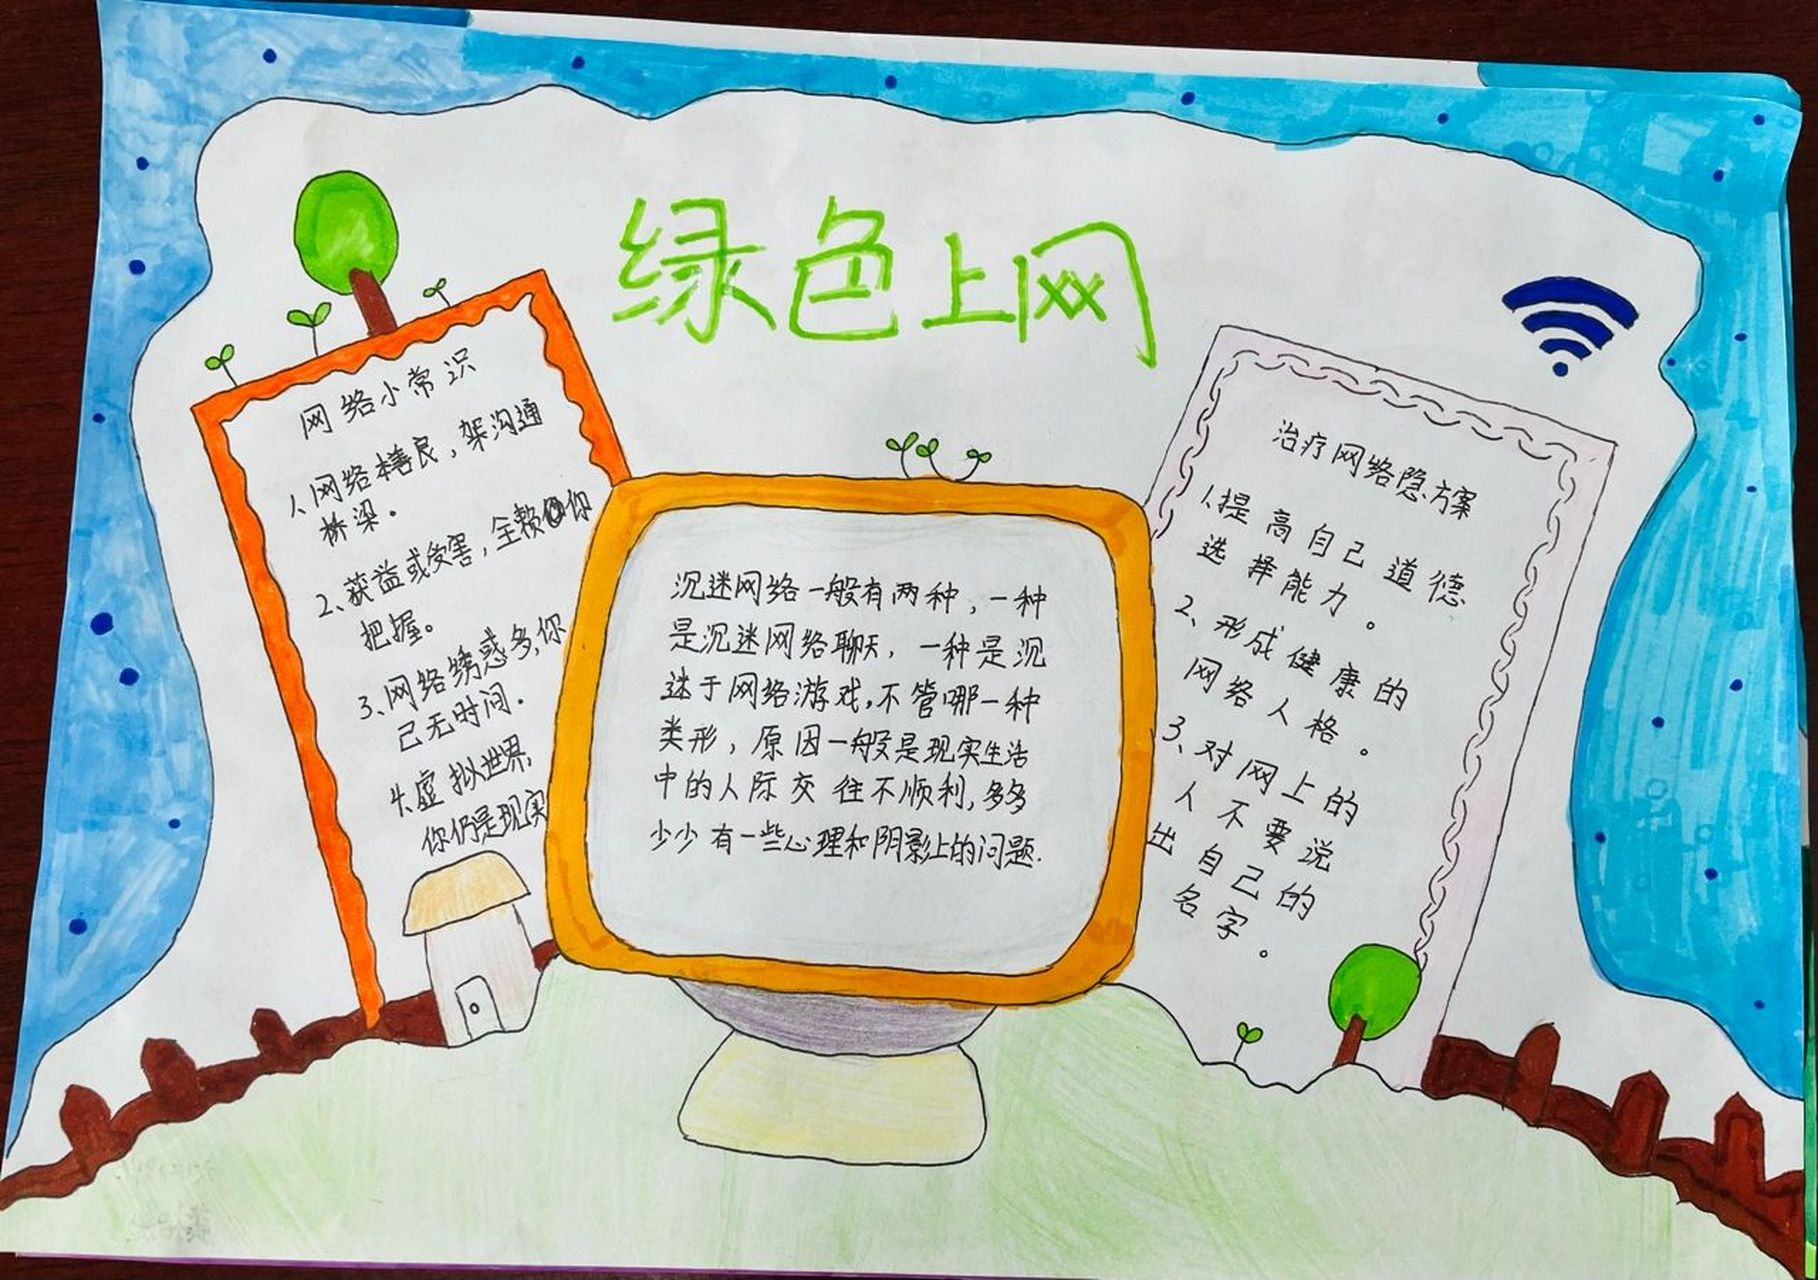 绿色上网
网络小常识
1、网络本善良，架沟通
桥梁。
2、获益或受害，全赖你
把握。
3、网络绣惑多，你
己无时间．
4、虚拟世界，
你仍是现实
沉迷网络一般有两种，一种
是沉迷网络聊天，一种是沉
迷于网络游戏，不管哪一种
类形，原因一般是现实生活
中的人际交往不顺利，多多
少少有一些心理和阴影上的问题．
治疗网络隐方案
1、提高自己道德
选择能力。
2、形成健康的
网络人格。
3、对网上的
人不要说
出自己的
名字。